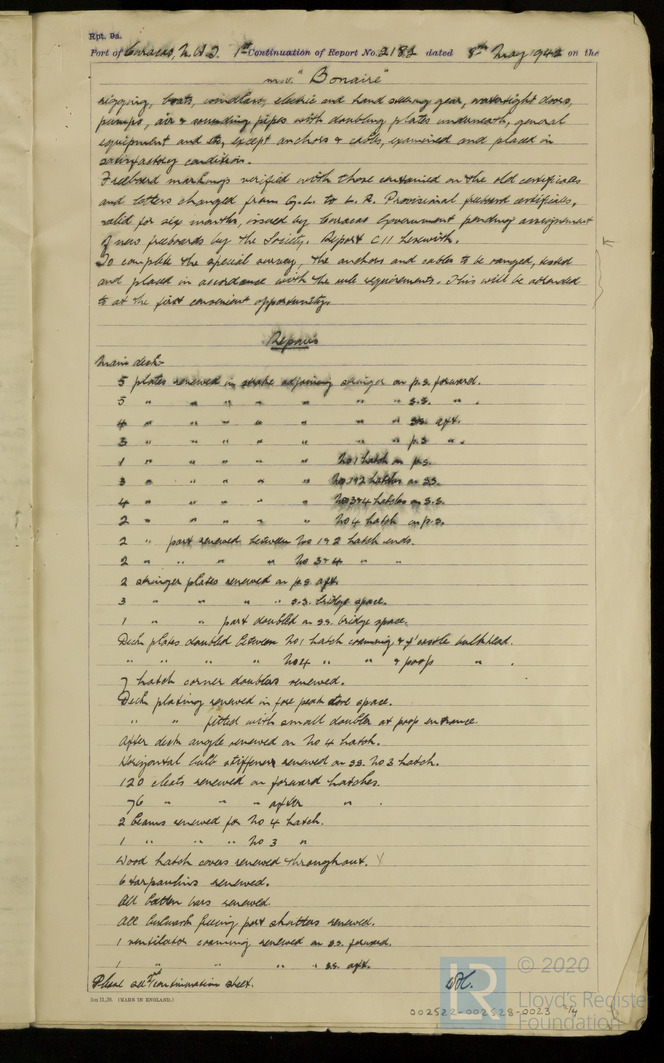 Rpt. 9a.
Port of Curacao, N.W.I. 1st Continuation of Report No. 2182 dated 8th May 1942 on the
m.v. "Bonaire"
rigging, boats, windlass, electric and hand steering gear, watertight doors,
pumps, air & sounding pipes with doubling plates underneath, general
equipment and etc, except anchors & cables, examined and placed in
satisfactory condition.
Freeboard markings verified with those contained on the old certificates
and letters changed from G.L. to L.R. Provisional freeboard certificates,
valid for six months, issued by Curacao Government pending assignment
of new freeboards by the Society. Report C11 herewith.
To complete the special survey, the anchors and cables to be ranged, tested
and placed in accordance with the rule requirements. This will be attended
to at the first convenient opportunity.
Repairs
Main deck:-
5 plates renewed in strake adjoining stringer on p.s. forward.
5 " " " " " " " s.s. " .
4 " " " " " " " s.s. aft.
3 " " " " " " " p.s. " .
1 " " " " " No 1 hatch on p.s.
3 " " " " " No 1 & 2 hatches on s.s.
4 " " " " " No 3 & 4 hatches on s.s.
2 " " " " " No 4 hatch on p.s.
2 " part renewed between No 1 & 2 hatch ends.
2 " " " " No 3 & 4 " "
2 stringer plates renewed on p.s. aft.
3 " " " " s.s. bridge space.
1 " " part doubled on s.s. bridge space.
Deck plates doubled between No 1 hatch coaming & f'castle bulkhead.
" " " " No 4 " " & poop " .
7 hatch corner doublers renewed.
Deck plating renewed in fore peak store space.
" " fitted with small doubler at poop entrance.
After deck angle renewed on No 4 hatch.
Horizontal bulb stiffener renewed on s.s. No 3 hatch.
120 cleats renewed on forward hatches.
76 " " " after " .
2 beams renewed for No 4 hatch.
1 " " " No 3 "
Wood hatch covers renewed throughout.
6 tarpaulins renewed.
All batten bars renewed.
All bulwark freeing port shutters renewed.
1 ventilator coaming renewed on s.s. forward.
1 " " " " s.s. aft.
Please see 2nd continuation sheet.
(MADE IN ENGLAND.)
© 2020
LR
Lloyd's Register
Foundation
002522-002528-0023